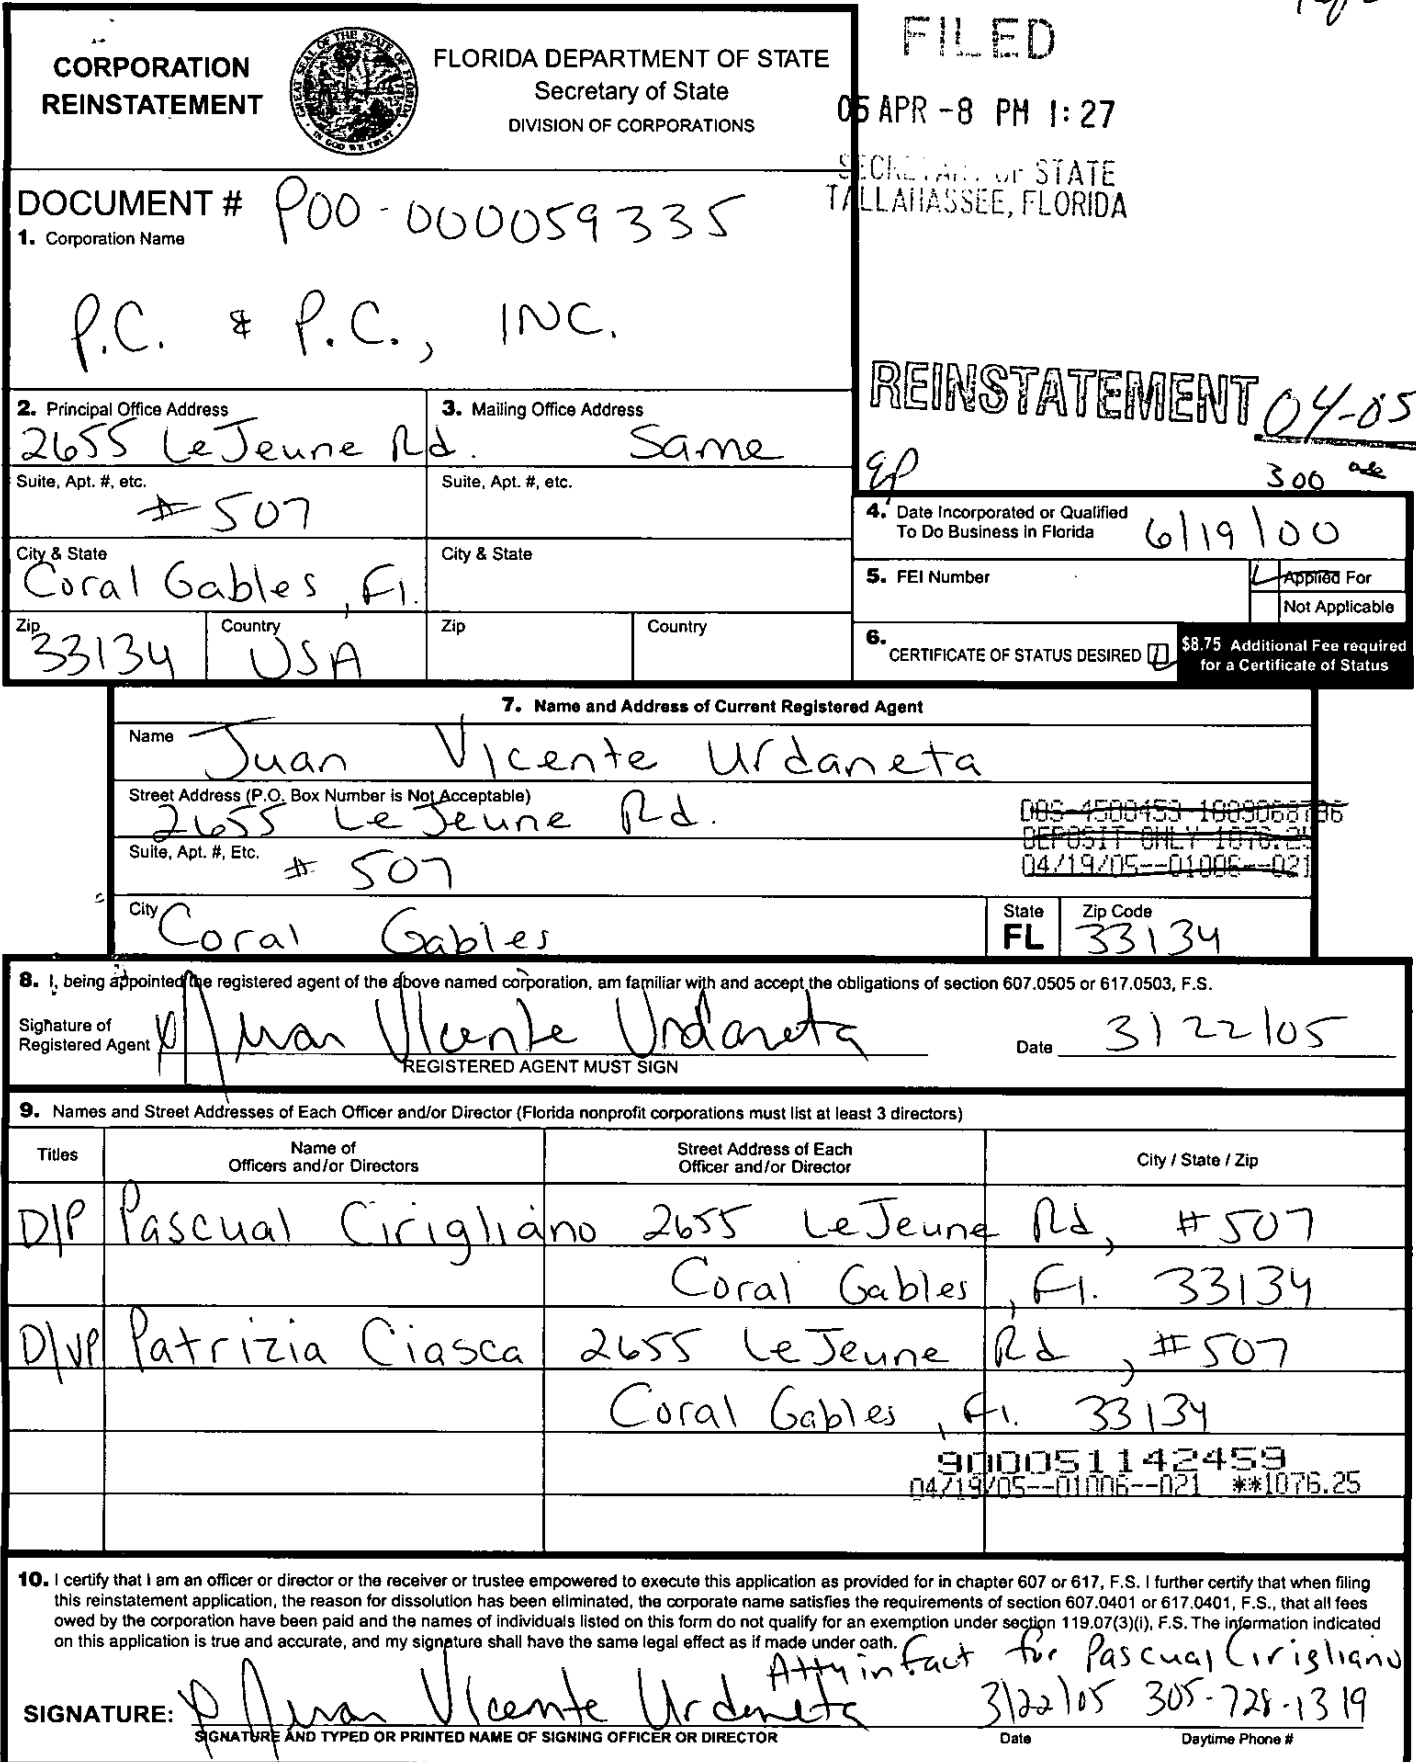 CORPORATION
REINSTATEMENT
GREAT SEAL OF THE STATE OF FLORIDA
IN GOD WE TRUST
FLORIDA DEPARTMENT OF STATE
Secretary of State
DIVISION OF CORPORATIONS
FILED
05 APR -8 PM 1:27
SECRETARY OF STATE
TALLAHASSEE, FLORIDA
DOCUMENT # P00-000059335
1. Corporation Name
P.C. & P.C., INC.
REINSTATEMENT 04-05
300
2. Principal Office Address
2655 LeJeune Rd.
3. Mailing Office Address
Same
Suite, Apt. #, etc.
#507
Suite, Apt. #, etc.
City & State
Coral Gables, Fl.
City & State
Zip
33134
Country
USA
Zip
Country
4. Date Incorporated or Qualified
To Do Business in Florida
6/19/00
5. FEI Number
Applied For
Not Applicable
6.
CERTIFICATE OF STATUS DESIRED
$8.75 Additional Fee required
for a Certificate of Status
7. Name and Address of Current Registered Agent
Name
Juan Vicente Urdaneta
Street Address (P.O. Box Number is Not Acceptable)
2655 LeJeune Rd.
DEPOSIT ONLY 1076.25
04/19/05--01006--021
Suite, Apt. #, Etc.
# 507
City
Coral Gables
State
FL
Zip Code
33134
8. I, being appointed the registered agent of the above named corporation, am familiar with and accept the obligations of section 607.0505 or 617.0503, F.S.
Signature of
Registered Agent
Juan Vicente Urdaneta
REGISTERED AGENT MUST SIGN
Date 3/22/05
9. Names and Street Addresses of Each Officer and/or Director (Florida nonprofit corporations must list at least 3 directors)
Titles
Name of
Officers and/or Directors
Street Address of Each
Officer and/or Director
City / State / Zip
D/P Pascual Cirigliano 2655 LeJeune Rd, #507
Coral Gables, Fl. 33134
D/VP Patrizia Ciasca 2655 LeJeune Rd, #507
Coral Gables, Fl. 33134
900051142459
04/19/05--01006--021 **1076.25
10. I certify that I am an officer or director or the receiver or trustee empowered to execute this application as provided for in chapter 607 or 617, F.S. I further certify that when filing
this reinstatement application, the reason for dissolution has been eliminated, the corporate name satisfies the requirements of section 607.0401 or 617.0401, F.S., that all fees
owed by the corporation have been paid and the names of individuals listed on this form do not qualify for an exemption under section 119.07(3)(i), F.S. The information indicated
on this application is true and accurate, and my signature shall have the same legal effect as if made under oath.
Atty in fact for Pascual Cirigliano
SIGNATURE: Juan Vicente Urdaneta 3/22/05 305-728-1319
SIGNATURE AND TYPED OR PRINTED NAME OF SIGNING OFFICER OR DIRECTOR
Date
Daytime Phone #